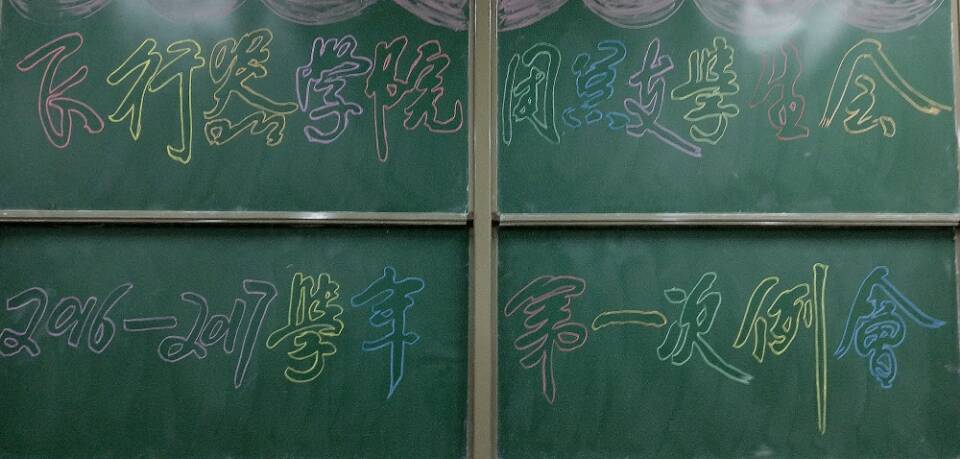 飞行器学院 团总支學生会
2016—2017學年 第一次例會